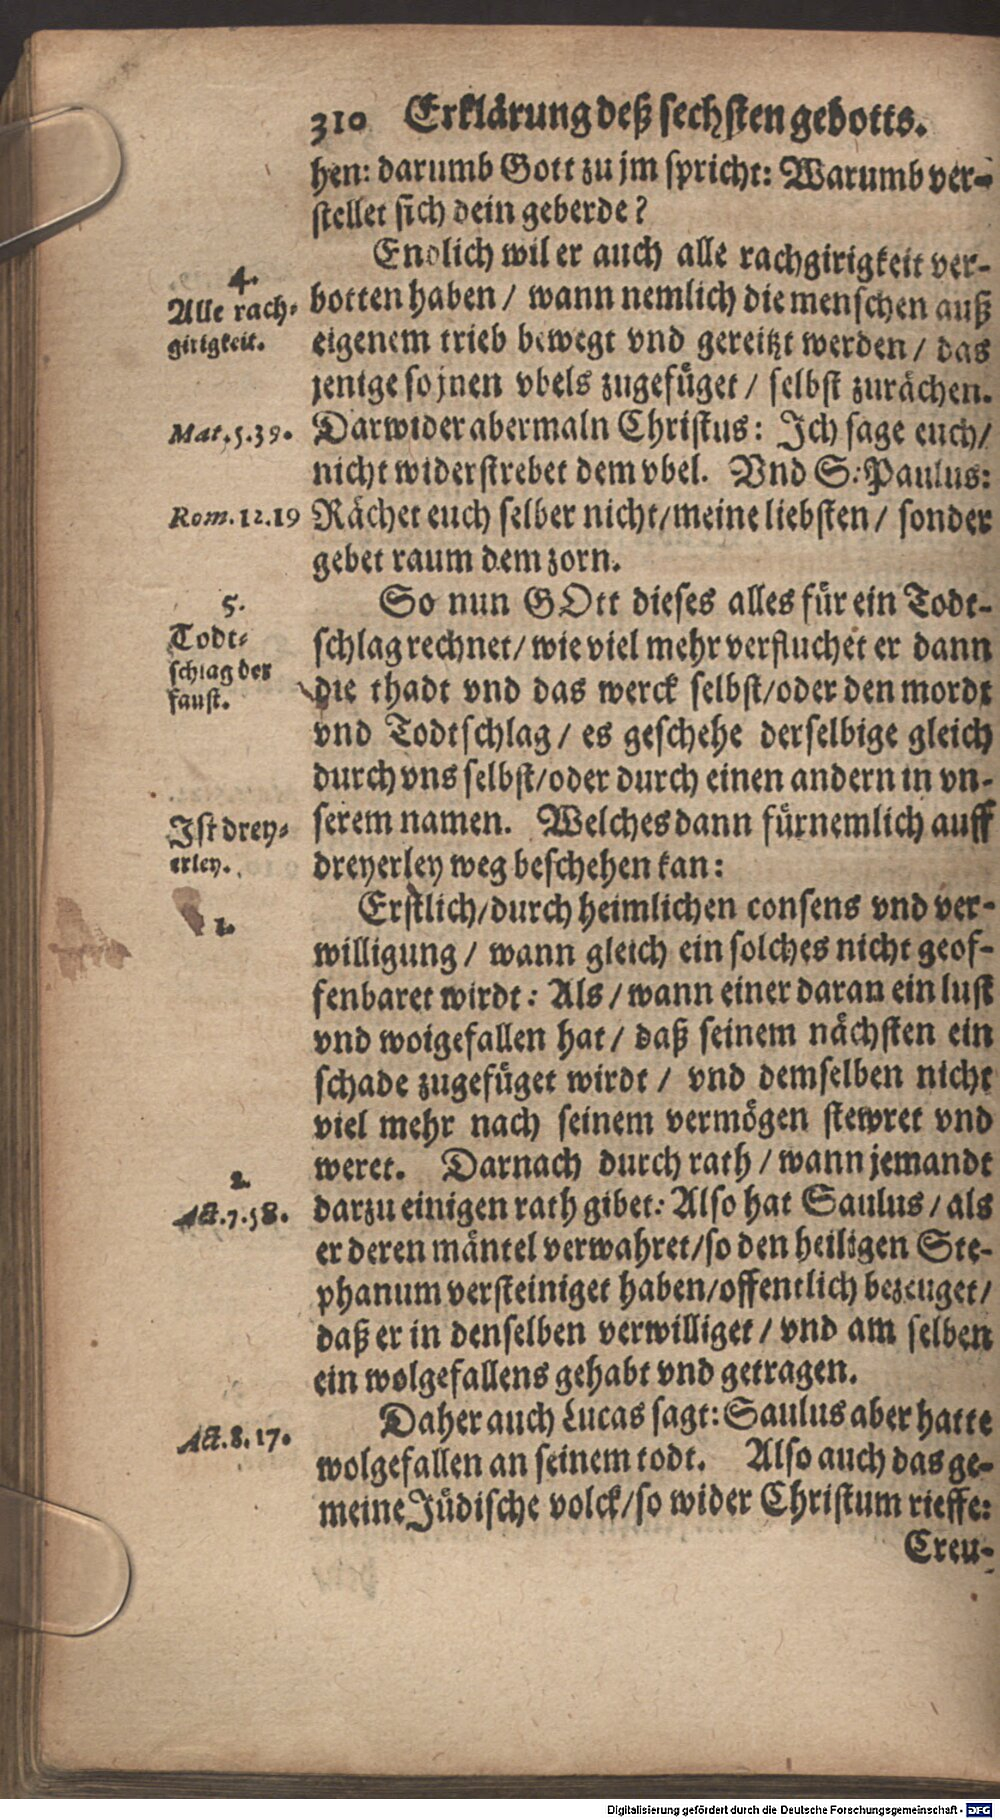 310 Erklärung deß sechsten gebotts.
hen: darumb Gott zu jm spricht: Warumb ver-
stellet sich dein geberde?
Endlich wil er auch alle rachgirigkeit ver-
4.
Alle rach-
girigkeit.
botten haben / wann nemlich die menschen auß
eigenem trieb bewegt vnd gereitzt werden / das
jenige so jnen vbels zugefüget / selbst zurächen.
Mat. 5.39.
Darwider abermaln Christus: Ich sage euch /
nicht widerstrebet dem vbel. Vnd S. Paulus:
Rom. 12.19
Rächet euch selber nicht / meine liebsten / sonder
gebet raum dem zorn.
5.
Todt-
schlag der
faust.
So nun GOtt dieses alles für ein Todt-
schlag rechnet / wie viel mehr verfluchet er dann
die thadt vnd das werck selbst / oder den mordt
vnd Todtschlag / es geschehe derselbige gleich
durch vns selbst / oder durch einen andern in vn-
Ist drey-
erley.
serem namen. Welches dann fürnemlich auff
dreyerley weg beschehen kan:
1.
Erstlich / durch heimlichen consens vnd ver-
willigung / wann gleich ein solches nicht geof-
fenbaret wirdt: Als / wann einer daran ein lust
vnd wolgefallen hat / daß seinem nächsten ein
schade zugefüget wirdt / vnd demselben nicht
viel mehr nach seinem vermögen stewret vnd
2.
weret. Darnach durch rath / wann jemandt
Act. 7.58.
darzu einigen rath gibet: Also hat Saulus / als
er deren mäntel verwahret / so den heiligen Ste-
phanum versteiniget haben / offentlich bezeuget /
daß er in denselben verwilliget / vnd am selben
ein wolgefallens gehabt vnd getragen.
Act. 8.17.
Daher auch Lucas sagt: Saulus aber hatte
wolgefallen an seinem todt. Also auch das ge-
meine Jüdische volck / so wider Christum rieffe:
Creu-
Digitalisierung gefördert durch die Deutsche Forschungsgemeinschaft - DFG